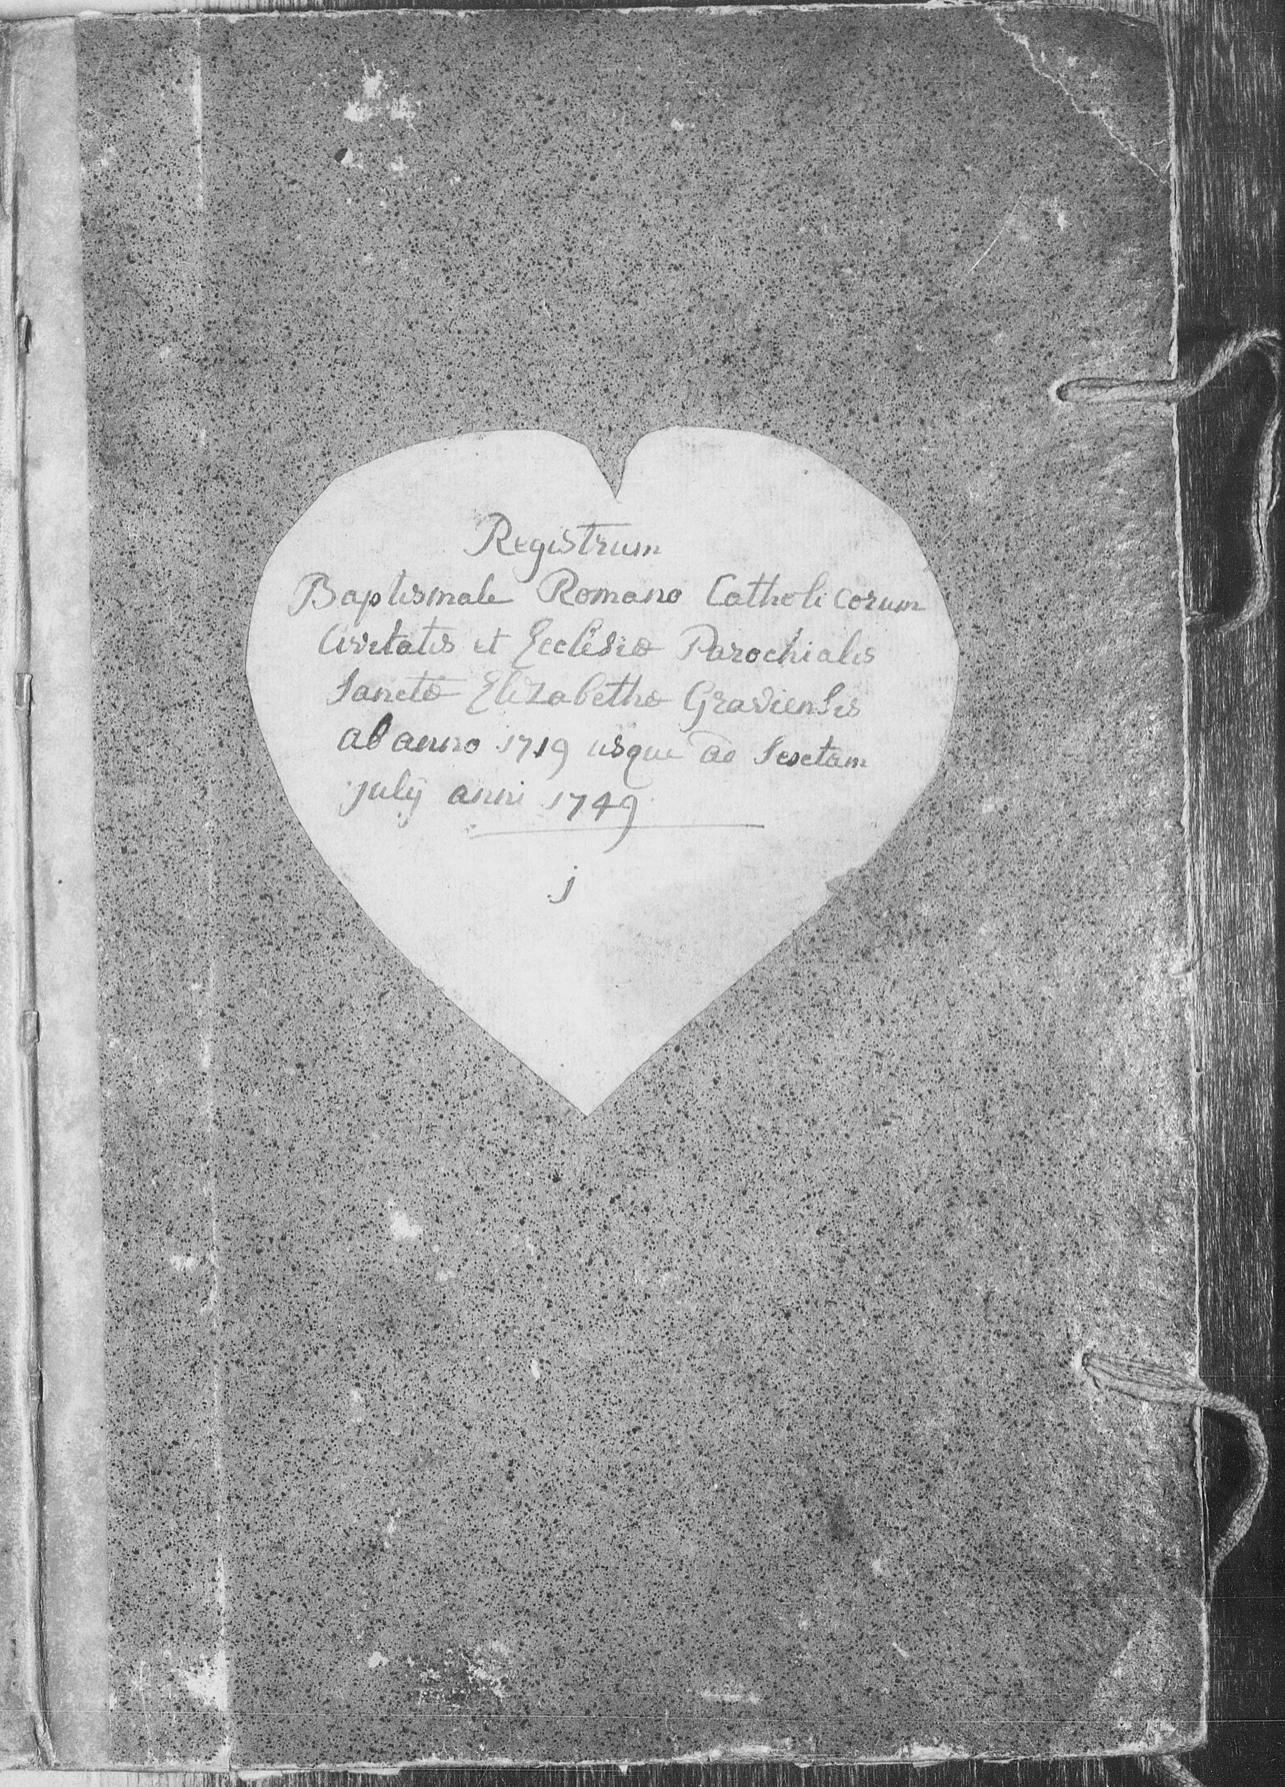 Registrum
Baptismale Romano Catholicorum
Civitatis et Ecclesiæ Parochialis
Sanctæ Elizabethæ Graviensis
ab anno 1719 usque ad Sextam
julÿ anni 1749
j